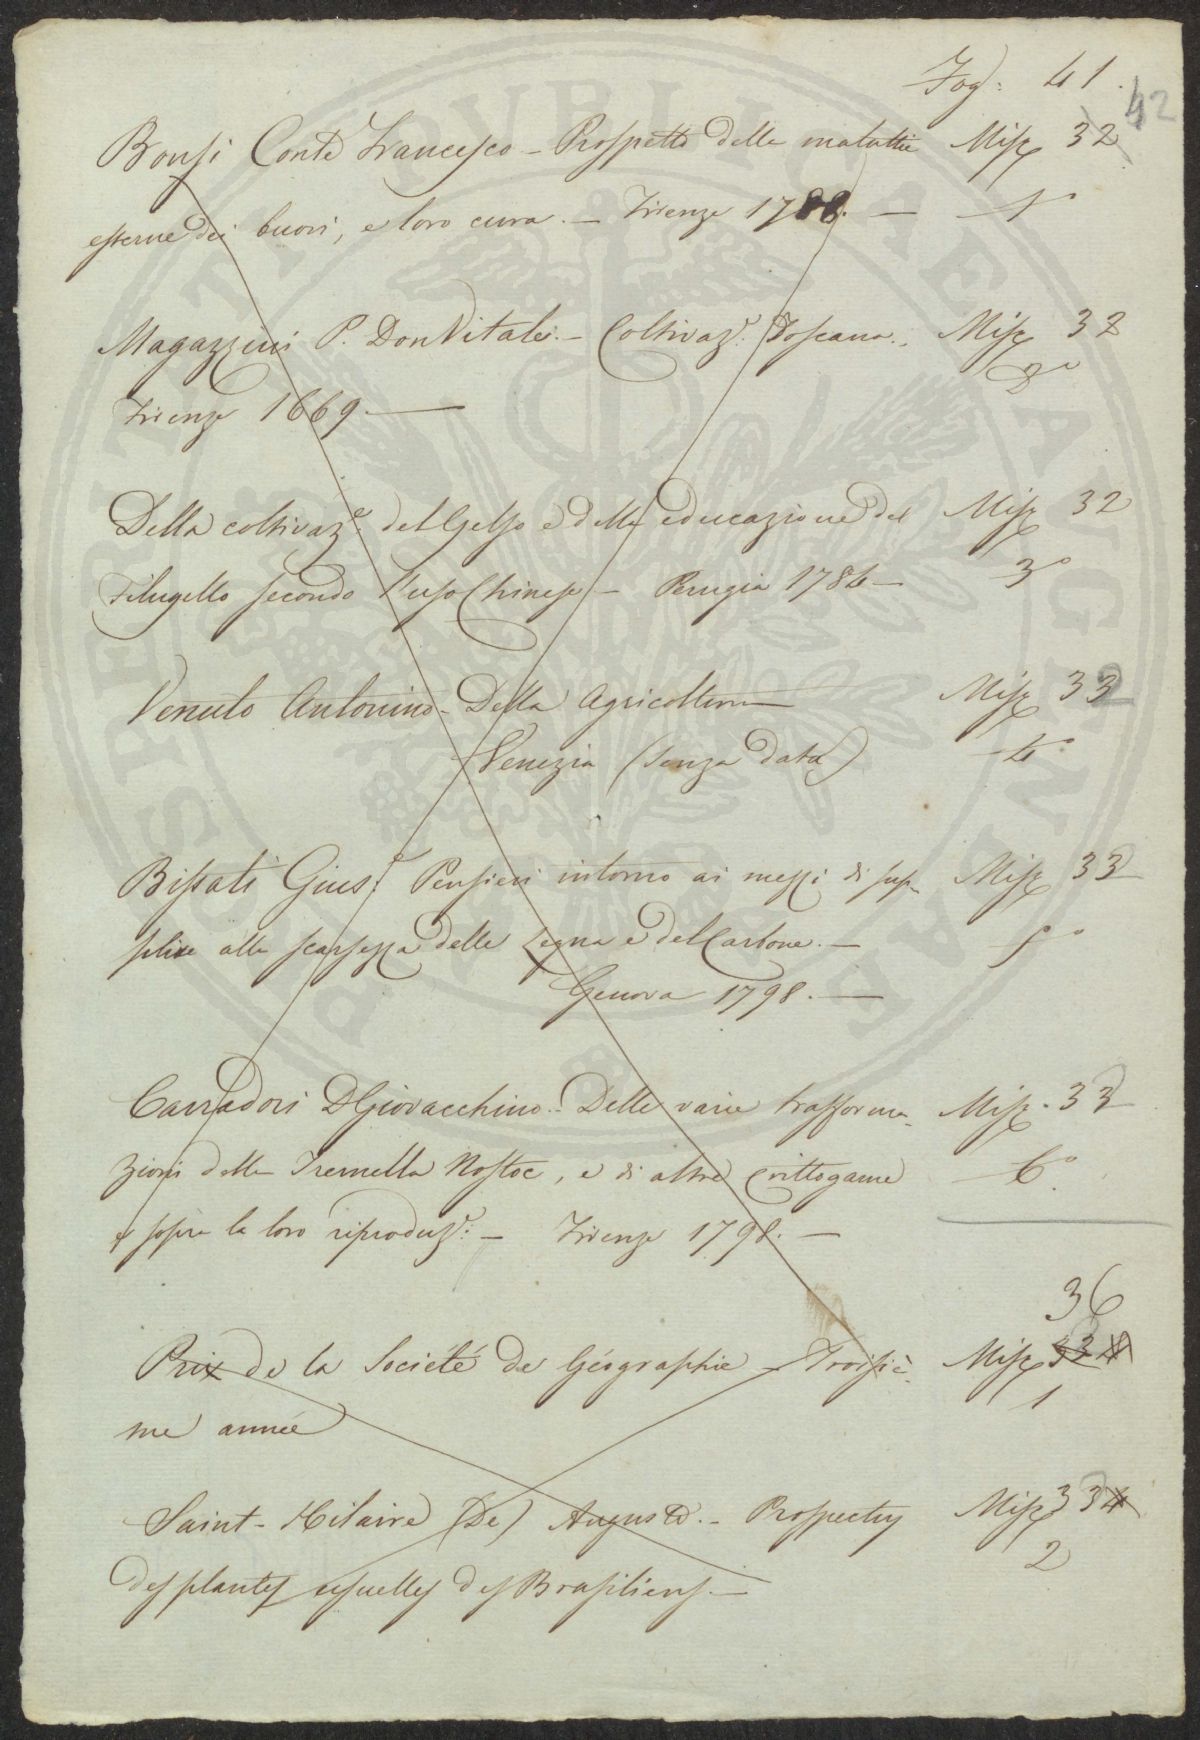 Fog: 41.
42
Bonsi Conte Francesco – Prospetto delle malattie Misc 32
esterne dei buovi, e loro cura. – Firenze 1788. – 1°
Magazzini P. Don Vitale. – Coltivaz.e Toscana. Misc 32
Firenze 1669. – 2°
Della coltivaz.e del Gelso e della educazione del Misc 32
Filugello secondo l'uso Chinese – Perugia 1784 – 3°
Venuto Antonino – Della Agricoltura Misc 32
Venezia (senza data) 4°
Bissati Gius.e Pensieri intorno ai mezzi di sup- Misc 33
plire alla scarsezza delle Legna e del Carbone. – 5°
Genova 1798. –
Carradori D Giovacchino. – Delle varie trasforma- Misc. 33
zioni della Tremella Nostoc, e di altre Crittogame 6°
e sopra la loro riproduz.e: – Firenze 1798. –
36
Prix de la Societé de Géographie – Troisiè- Misc 334
me année 1
Saint-Hilaire (De) Auguste. – Prospectus Misc 334
des plantes usuelles des Brasiliens. – 2
POSTERITATI PUBLICAE AUGENDAE